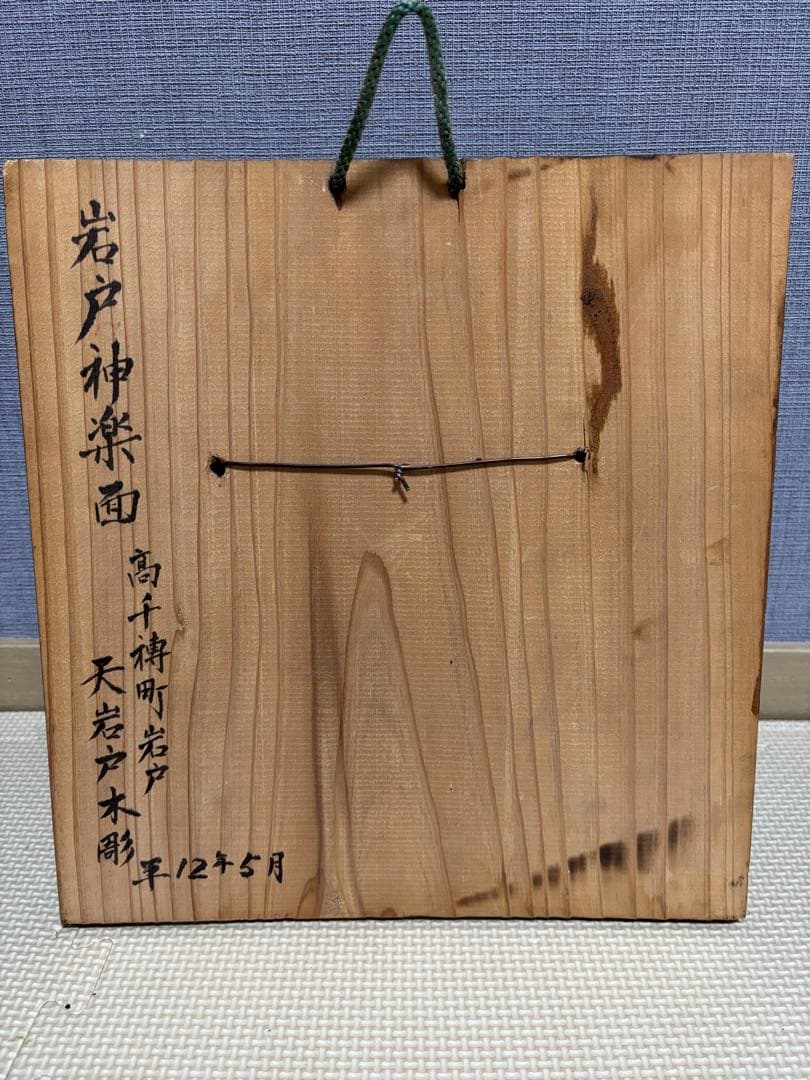 岩戸神楽面
高千穂町岩戸
天岩戸木彫
平12年5月